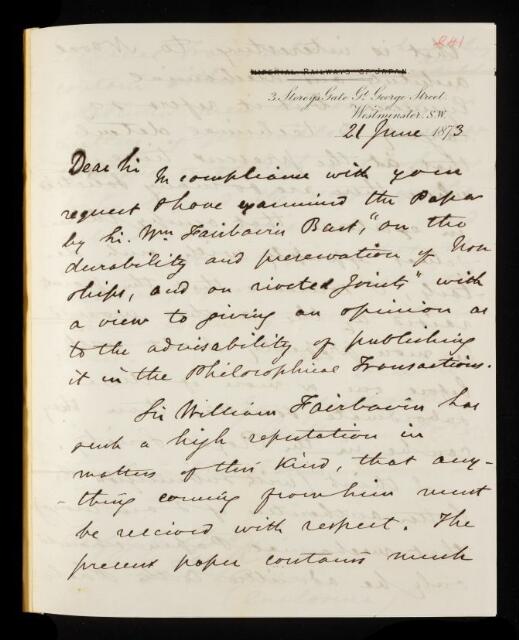 241
IMPERIAL RAILWAYS OF JAPAN
3, Storeys Gate Gt. George Street.
Westminster. S.W.
21 June 1873
Dear Sir In compliance with your
request I have examined the Paper
by Sir. Wm. Fairbairn Bart, "on the
durability and preservation of Iron
ships, and on riveted Joints" with
a view to giving an opinion as
to the advisability of publishing
it in the Philosophical Transactions.
Sir William Fairbairn has
such a high reputation in
matters of this kind, that any-
-thing coming from him must
be received with respect. The
present paper contains much